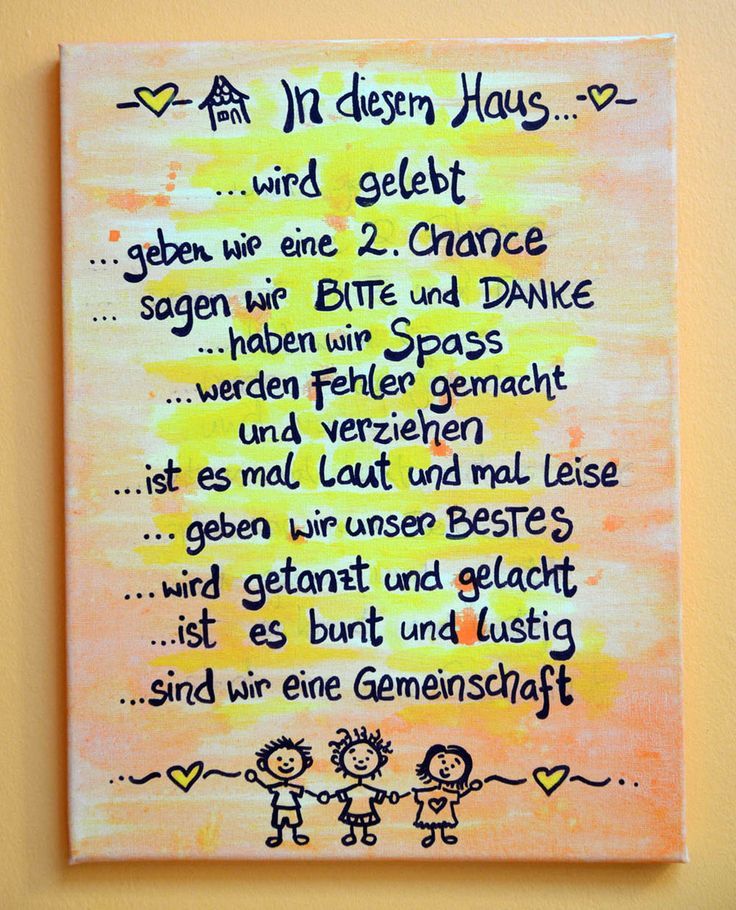 In diesem Haus...
...wird gelebt
...geben wir eine 2. Chance
... sagen wir BITTE und DANKE
...haben wir Spass
...werden Fehler gemacht
und verziehen
...ist es mal laut und mal leise
... geben wir unser BESTES
...wird getanzt und gelacht
...ist es bunt und lustig
...sind wir eine Gemeinschaft